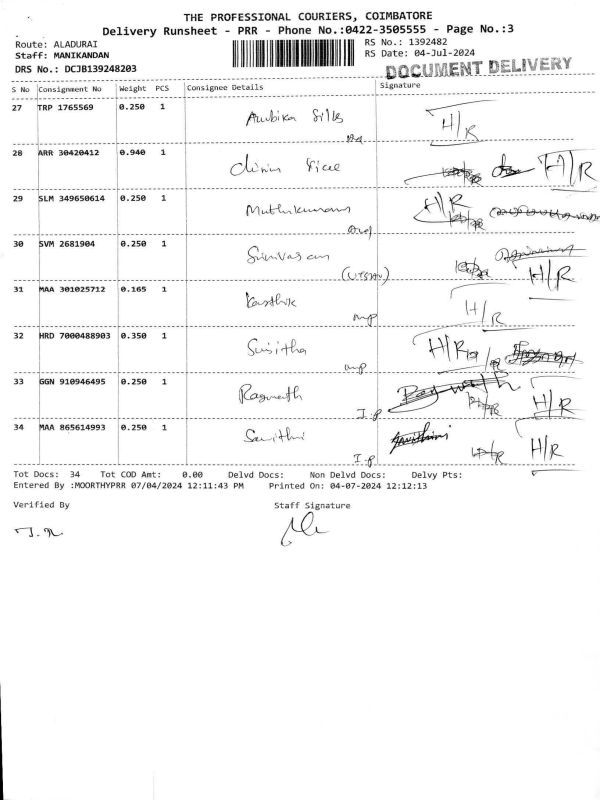 THE PROFESSIONAL COURIERS, COIMBATORE
Delivery Runsheet - PRR - Phone No.:0422-3505555 - Page No.:3
Route: ALADURAI
RS No.: 1392482
Staff: MANIKANDAN
RS Date: 04-Jul-2024
DRS No.: DCJB139248203
DOCUMENT DELIVERY
S No Consignment No Weight PCS Consignee Details Signature
27 TRP 1765569 0.250 1 Ambika Silks H/R
28 ARR 30420412 0.940 1 H/R
29 SLM 349650614 0.250 1 Muthukumar H/R
30 SVM 2681904 0.250 1 Srinivasan H/R
31 MAA 301025712 0.165 1 Karthik H/R
mp
32 HRD 7000488903 0.350 1 Susitha H/R
mp
33 GGN 910946495 0.250 1 Ragunath H/R
I.p
34 MAA 865614993 0.250 1 Savithri H/R
I.p
Tot Docs: 34 Tot COD Amt: 0.00 Delvd Docs: Non Delvd Docs: Delvy Pts:
Entered By :MOORTHYPRR 07/04/2024 12:11:43 PM Printed On: 04-07-2024 12:12:13
Verified By Staff Signature